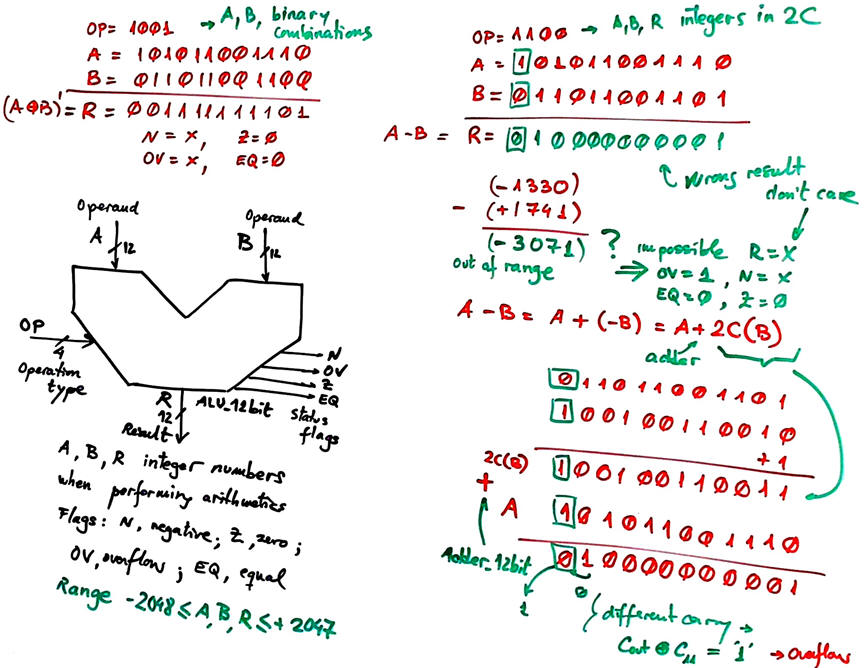 OP= 1001 → A, B, binary
combinations
A = 101011001110
B = 011011001100
(A⊕B)' = R = 001111111101
N = x, Z=0
OV = x, EQ=0
Operand
A
12
Operand
B
12
OP
4
Operation
type
N
OV
Z
EQ
status
flags
R
12
ALU_12bit
Result
A, B, R integer numbers
when performing arithmetics
Flags: N, negative; Z, zero;
OV, overflow; EQ, equal
Range -2048 ≤ A, B, R ≤ + 2047
OP= 1100 → A, B, R integers in 2C
A = 101011001110
B = 011011001101
A-B = R= 010000000001
Wrong result
don't care
(-1330)
- (+1741)
(-3071) ?
out of range
impossible R=X
⇒ OV=1, N=x
EQ=0, Z=0
A-B = A + (-B) = A + 2C(B)
adder
011011001101
100100110010
+1
2C(B) 100100110011
+ A 101011001110
Adder_12bit 010000000001
1 0
different carry →
Cout ⊕ C11 = '1' → overflow